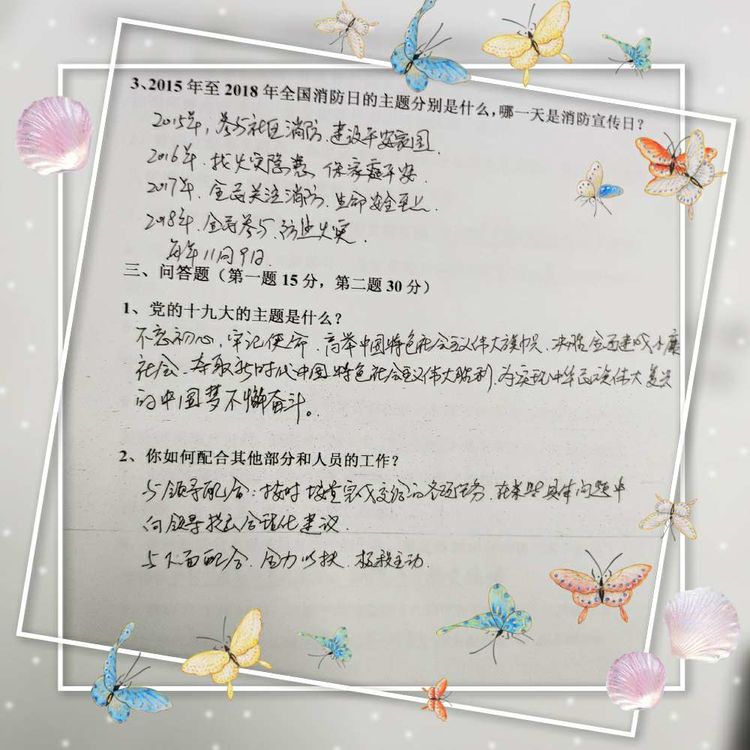 3、2015 年至 2018 年全国消防日的主题分别是什么，哪一天是消防宣传日？
2015年，参与社区消防，建设平安家园．
2016年．找火灾隐患，保家庭平安．
2017年．全民关注消防．生命安全至上．
2018年．全民参与．防治火灾．
每年11月9日．
三、问答题（第一题 15 分，第二题 30 分）
1、党的十九大的主题是什么？
不忘初心，牢记使命．高举中国特色社会主义伟大旗帜．决胜全面建成小康
社会．夺取新时代中国特色社会主义伟大胜利．为实现中华民族伟大复兴
的中国梦不懈奋斗。
2、你如何配合其他部分和人员的工作？
与领导配合：按时按量完成交给的各项任务．在某些具体问题中
向领导提出合理化建议．
与下面配合．全力以扶．积极主动．